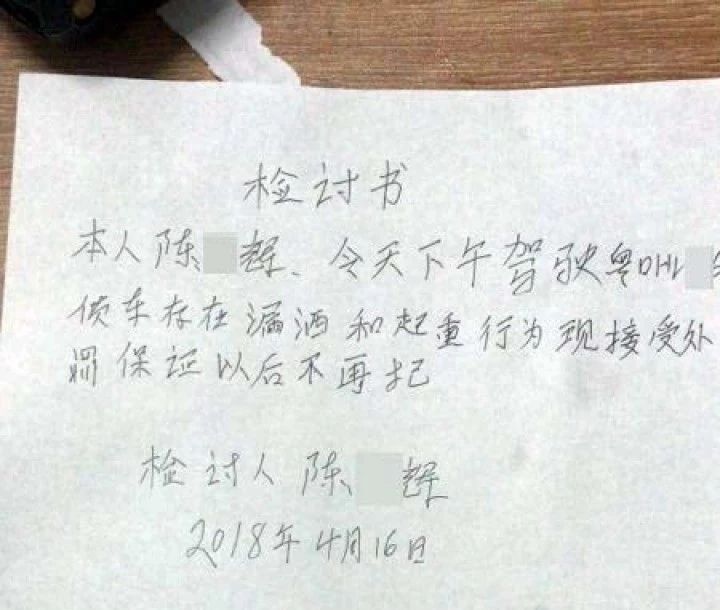 检讨书
本人陈 辉、今天下午驾驶粤DHL
债车存在漏洒和起重行为现接受处
罰保证以后不再犯
检讨人陈 辉
2018年4月16日